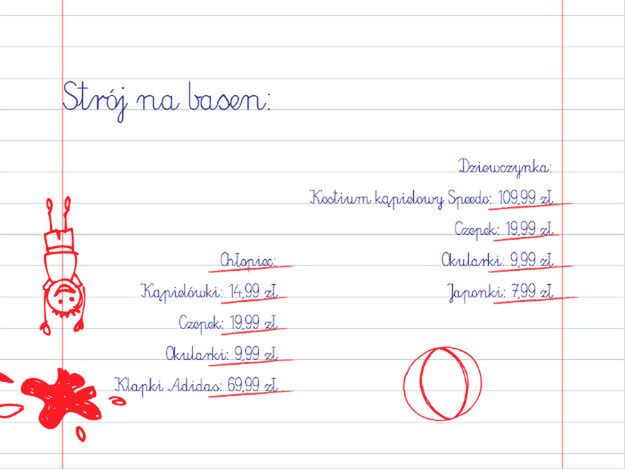 Strój na basen:
Dziewczynka:
Kostium kąpielowy Speedo: 109,99 zł
Czepek: 19,99 zł
Okularki: 9,99 zł
Japonki: 7,99 zł
Chłopiec:
Kąpielówki: 14,99 zł
Czepek: 19,99 zł
Okularki: 9,99 zł
Klapki Adidas: 69,99 zł